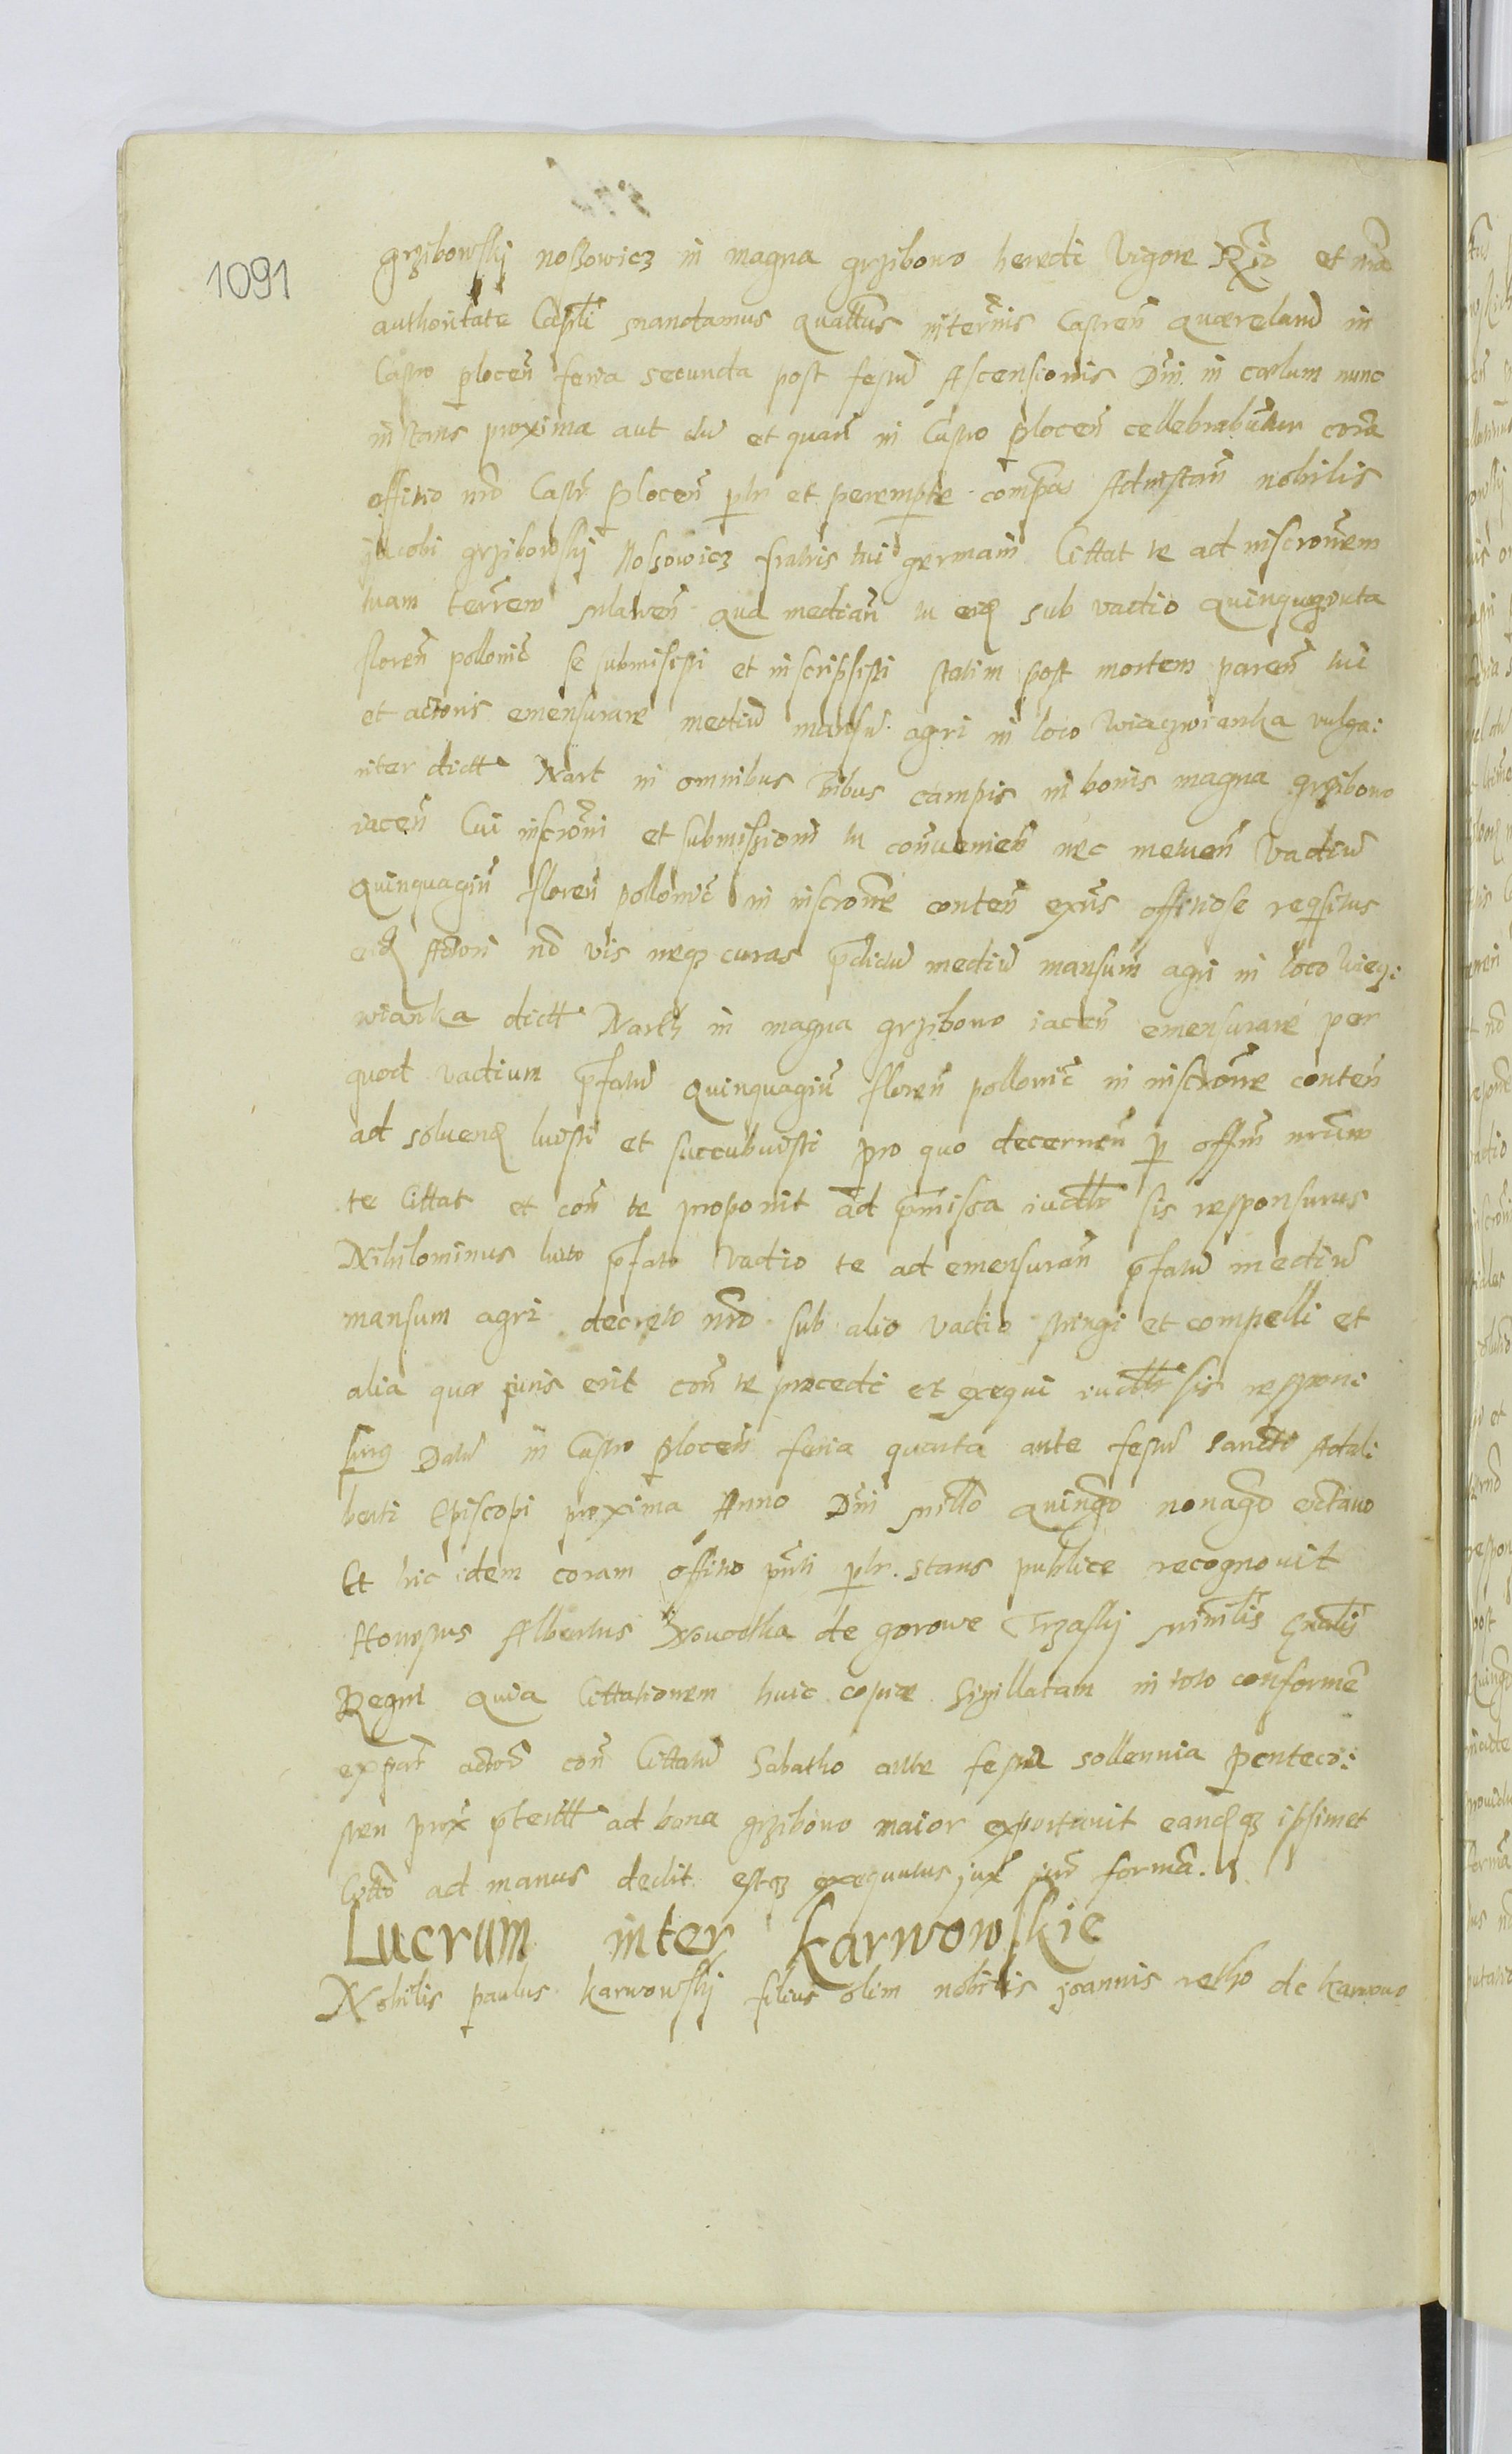 1091
grzibowskj noßowicz in magna grzibowo heredi Vigore Rio et nra
authoritate Capli mandamus quattus interinis Castren quærelarũ in
Castro plocen̄ feria secunda post festũ Ascensionis Dni in cœlum nunc
instans proxima aut dũ et quan in Castro plocen̄ cellebrabuntur corã
officio nrõ Castr̄ plocen̄ plr et perempte compa Adinstan̄ nobilis
jacobi grzibowskj Noßowicz fratris tui germani Cittat te ad inscronem
tuam terrem Mlawen̄ qua median̄ tu eidẽ sub vadio quinquaginta
floren̄ pollonic̄ se submisisti et inscripsisti statim post mortem paren̄ tui
et actoris emensurare mediũ mansũ agri in loco Wiaczwianka vulga:
riter dictt Nart in omnibus tribus campis in bonis magna grzibowo
iacen̄ Cui inscroni et submissioni tu conuenien̄ nec metuen̄ Vadiũ
quinquagin̄ floren̄ pollonic̄ in inscrone conten̄ exñs offitiose reqsitus
eidẽ Actori nõ vis neqz curas p̄dictũ mediũ mansum agri in loco Wiecz:
wianka dictt Narth in magna grzibowo iacen̄ emensurare per
quod vadium p̄fatũ quinquagin̄ floren̄ pollonic̄ in inscrone conten̄
ad soluend luisti et succubuisti pro quo decernen̄ p offm̄ nrum
te Cittat et con̄ te proponit ad p̄missa iudltr sis responsurus
Nihilominus luito p̄fato Vadio te ad emensuran̄ p̄fatũ mediũ
mansum agri decreto nrõ sub alio vadio stringi et compelli et
alia quæ juris erit con̄ te procedi et exequi iudltr sis respon:
surus Datũ in Castro plocen̄ feria quarta ante festũ sancti Adal:
berti Episcopi proxima Anno Dni millõ quingõ nonagõ octauo
Et hic idem coram offitio pn̄ti plr. stans publice recognouit
Honestus Albertus Wouodka de gorowe Trzaskj mi͞nilis gn̄alis
Regni quia Cittationem huic copiæ Sigillatam in toto conformẽ
expart̄ actõr con̄ Cittatũ Sabatho ante festa sollennia penteco:
sten prox p̄teritt ad bona grzibowo maior exportauit eandẽqz ipsimet
Cittõ ad manus dedit estqz exequutus jux jur formã.
Lucrum inter Karwowskie
Nobilis paulus karwowskj filius olim nobilis joannis retho de karwowo